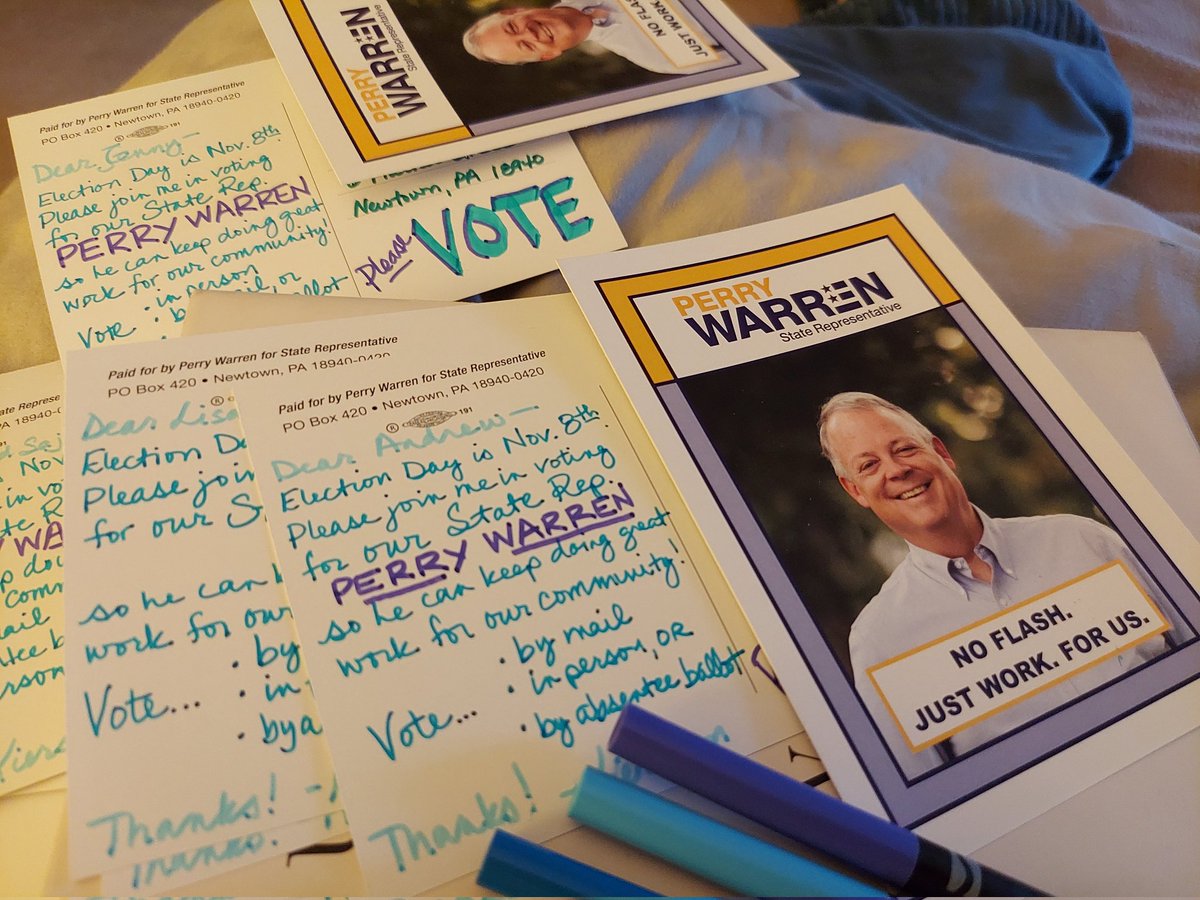 PERRY
WARREN
State Representative
NO FLASH.
JUST WORK.
Paid for by Perry Warren for State Representative
PO Box 420 • Newtown, PA 18940-0420
® 191
Dear Jenny—
Election Day is Nov. 8th
Please join me in voting
for our State Rep.
PERRY WARREN
so he can keep doing great
work for our community!
Vote : in person
Newtown, PA 18940
Please VOTE
Paid for by Perry Warren for State Representative
PO Box 420 • Newtown, PA 18940-0420
Dear Lisa
Election
Please join
for our
so he can
work for our
Vote... • by
• in
Thanks!
Paid for by Perry Warren for State Representative
PO Box 420 • Newtown, PA 18940-0420
® 191
Dear Andrew—
Election Day is Nov. 8th.
Please join me in voting
for our State Rep.
PERRY WARREN
so he can keep doing great
work for our community!
Vote... • by mail
• in person, OR
• by absentee ballot
Thanks!
PERRY
WARREN
State Representative
NO FLASH.
JUST WORK. FOR US.